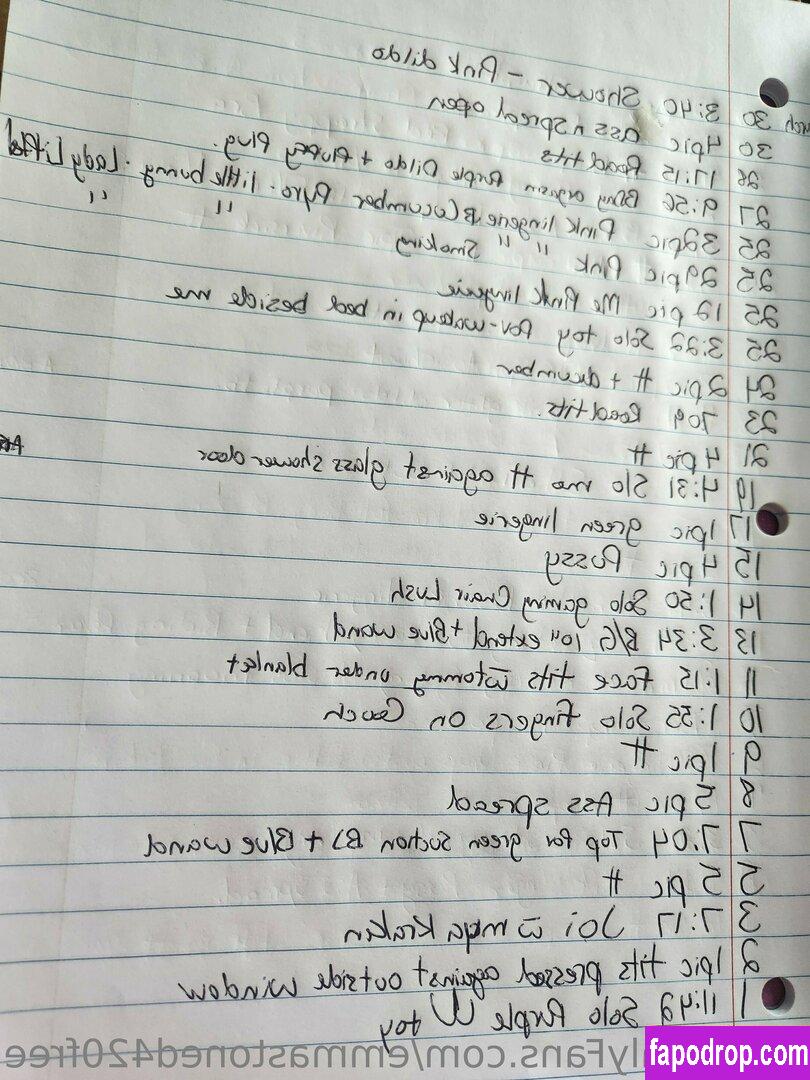 30 3:40 Shower - Pink dildo
30 4pic ass n spread open
28 17:15 Read tits
27 9:50 orgasm Purple Dildo + Plug.
25 32pic Pink lingerie B Cucumber Pyro. little bunny. Lady
25 29pic Pink " " Smoking " "
25 12 pic Me Pink lingerie
25 3:22 Solo toy Pov-wakeup in bed beside me
24 2pic # + cucumber
23 709 Read tits.
21 4 pic #
19 4:31 S/o me # against glass shower door
17 1pic green lingerie
15 4 pic Pussy
14 1:50 Solo gaming Chair Lush
13 3:34 B/G 1on extend + Blue wand
11 1:15 Face tits tommy under blanket
10 1:55 Solo fingers on Couch
9 1pic #
8 5 pic Ass spread
7 7:04 Top for green Suction BJ + Blue wand
5 5 pic #
3 7:17 Joi mega Kraken
2 1pic tits pressed against outside window
1 11:42 Solo Purple W toy
lyFans.com/emmastoned420free
fapodrop.com